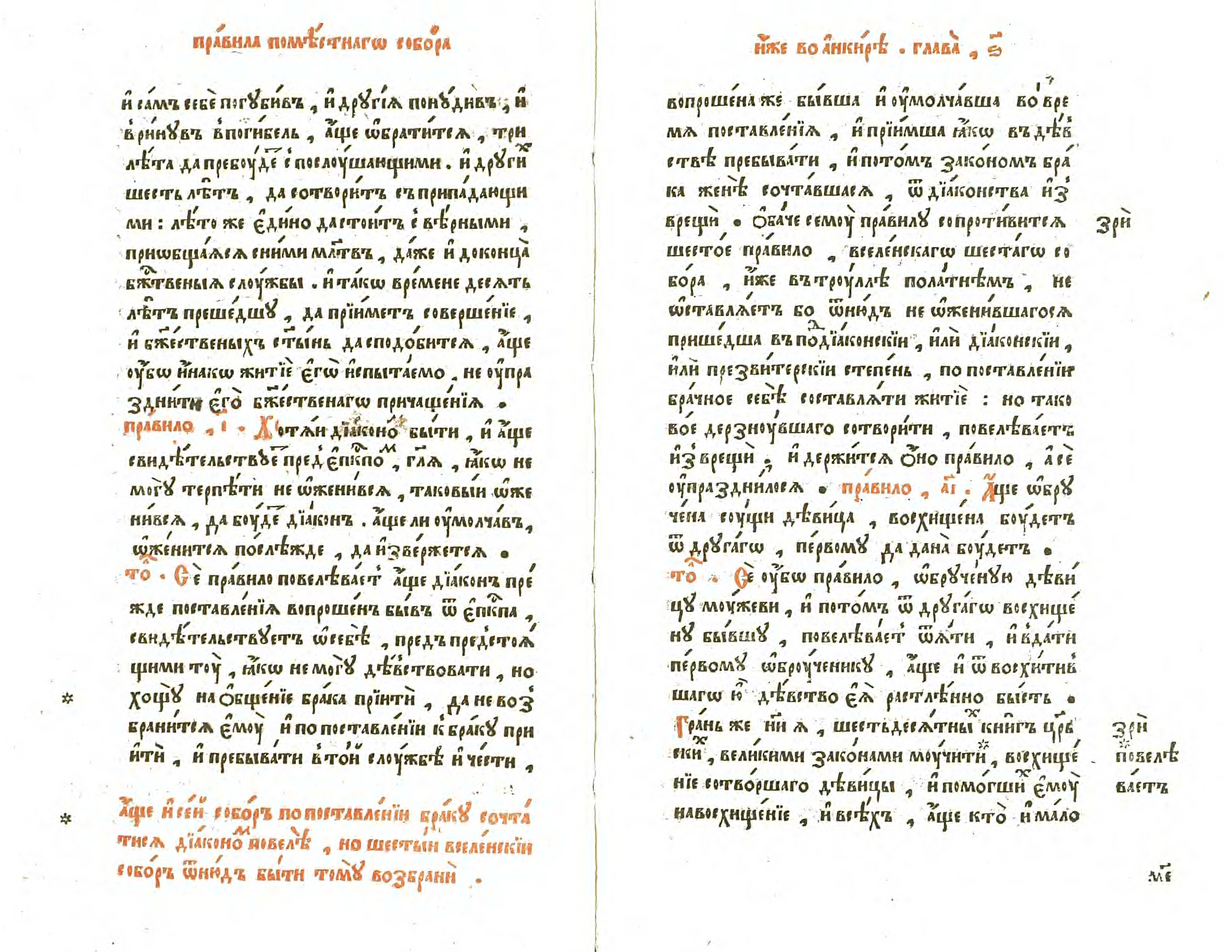 пра́вила помѣ́стнагѡ собо́ра
и҆ са́мъ себѐ погꙋби́въ , и҆ дрꙋгі́ѧ понꙋ́дивъ , и҆
ври́нꙋвъ впоги́бель , а҆́ще ѡ҆брати́тсѧ , три
лѣ́та да пребоу́де с̾ послоу́шающими . и҆ дрꙋги́х
шесть лѣ́тъ , да сотвори́тъ съ припа́дающи
ми : лѣ́то же є҆ди́но да стои́тъ с̾ вѣ́рными ,
приѡбща́ѧсѧ сни́ми мл҃твъ , да́же и҆ доконца̀
бж҃твеныѧ слоу́жбы . и҆ такѡ вре́мене де́сѧть
лѣ́тъ преше́дшꙋ , да прїи́метъ соверше́нїе ,
и҆ бж҃е́ственыхъ ст҃ы́нь да сподо́битсѧ , а҆́ще
оу҆́бѡ и҆́накѡ житїѐ є҆гѡ̀ и҆спыта́емо , не оу҆пра
зднитъ є҆го̀ бж҃е́ственагѡ причаще́нїѧ .
пра́вило , і҃ . Хотѧ́й дїа́коно бы́ти , и҆ а҆́ще
свидѣ́тельствꙋе пред̾ є҆пкⷭ҇по́м , гл҃ѧ , ꙗ҆́кѡ не
могꙋ̀ терпѣ́ти не ѡ҆жени́всѧ , таковы́й ѡ҆же
ни́всѧ , да боу́де дїа́кон . а҆́ще ли оу҆молча́въ ,
ѡ҆же́нитсѧ послѣ́жде , да и҆зве́ржетсѧ .
то̑ . Сѐ пра́вило повелѣва́ет а҆́ще дїа́конъ пре́
жде поставле́нїѧ вопроше́нъ бы́въ ѿ є҆пкⷭ҇па ,
свидѣ́тельствꙋетъ ѡ҆себѣ̀ , пред̾ предстоѧ́
щими тоу̀ , ꙗ҆́кѡ не могꙋ̀ дѣ́вствовати , но
хощꙋ̀ на ѻ҆бще́нїе бра́ка прїитѝ , да не воз̾
брани́тсѧ є҆моу̀ и҆ по поставле́нїи к̾ бра́кꙋ при
и҆тѝ , и҆ пребыва́ти в̾ то́й слоу́жбѣ и҆ че́сти ,
✲
✲
а҆́ще и҆ се́й собо́ръ по поставле́нїи бра́кꙋ сочта́
тисѧ дїа́коно́м повелѣ̀ , но шесты́й вселе́нскїй
собо́ръ ѿню́дъ бы́ти томꙋ̀ возбранѝ .
и҆́же во а҆нки́рѣ . глава̀ , ѕ҃
вопроше́на же бы́вша и҆ оу҆молча́вша во̀ вре
мѧ поставле́нїѧ , и҆ прїи́мша ꙗ҆́кѡ въ дѣ́в
ствѣ пребыва́ти , и҆ пото́мъ зако́номъ бра́
ка женѣ̀ сочта́вшасѧ , ѿ дїа́конства и҆з̾
врещѝ . ѻ҆ба́че семоу̀ пра́вилꙋ сопроти́витсѧ
зрѝ
шесто́е пра́вило , вселе́нскагѡ шеста́гѡ со
бо́ра , и҆́же въ троу́ллѣ пола́тнѣмъ , не
ѡ҆ставлѧ́етъ бо ѿню́дъ не ѡ҆жени́вшагосѧ
прише́дша въ подїа́конскїй , и҆лѝ дїа́конскїй ,
и҆лѝ презви́терскїй степе́нь , по поставле́нїи
бра́чное себѣ̀ составлѧ́ти житїѐ : но тако
во́е дерзноу́вшаго сотвори́ти , повелѣва́етъ
и҆з̾врещѝ : и҆ держи́тсѧ ѻ҆́но пра́вило , а҆ сѐ
оу҆праздни́лосѧ . пра́вило , а҃і . А҆́ще ѡ҆брꙋ
че́на соу́щи дѣви́ца , восхище́на боу́детъ
ѿ дрꙋга́гѡ , пе́рвомꙋ да дана̀ боу́детъ .
то̑ . Сѐ оу҆́бо пра́вило , ѡ҆брꙋче́нꙋю дѣви́
цꙋ моу́жеви , и҆ пото́мъ ѿ дрꙋга́гѡ восхище́
нꙋ бы́вшꙋ , повелѣва́ет ѿѧ́ти , и҆ вда́ти
пе́рвомꙋ ѡ҆броу́ченикꙋ , а҆́ще и҆ ѿ восхити́в
шагѡ ю҆̀ дѣ́вство є҆ѧ̀ растлѣ́нно бы́сть .
Гра́нь же н҃и ѧ , шестьдесѧ́тны́х кни́гъ цр҃ь
зрѝ
ски́х , вели́кими зако́нами моу́чити , восхище́
повелѣ
нїе сотво́ршаго дѣви́цы , и҆ помо́гши́х є҆моу̀
ва́етъ
навосхище́нїе , и҆ всѣ́хъ , а҆́ще кто̀ и҆ ма́ло
мⷭ҇е